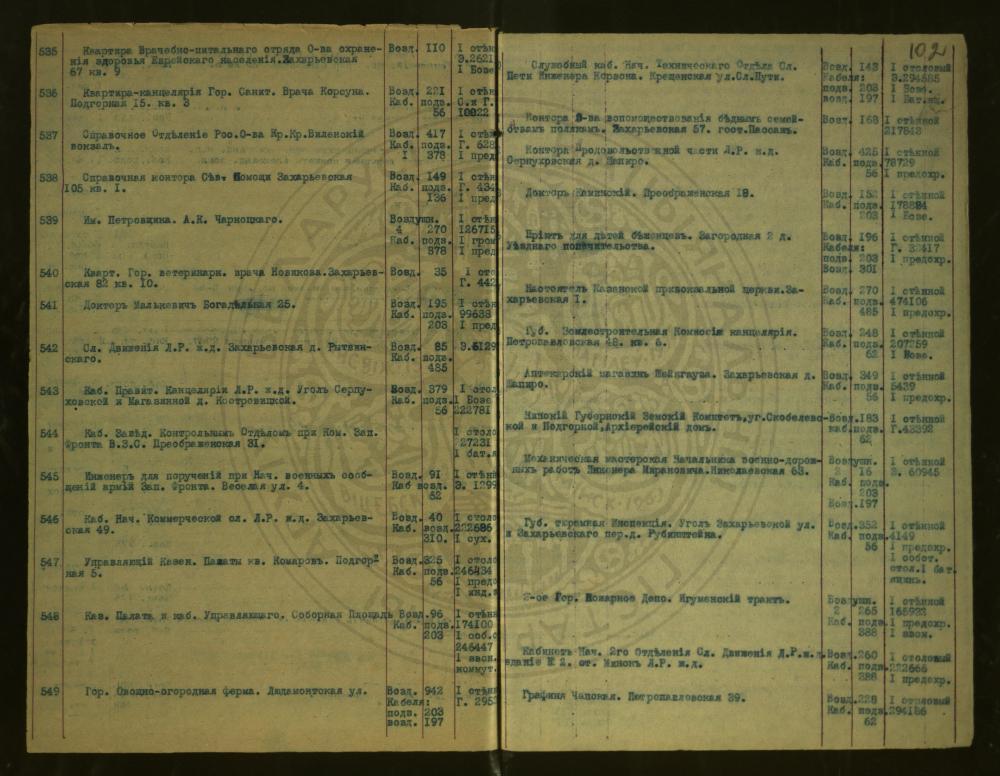 535 Квартира Врачебно-питательнаго отряда О-ва охране- Возд. 110 I стѣн
нія здоровья Еврейскаго населенія. Захарьевская Э.2621
67 кв. 9 I Бозе
536 Квартира-канцелярія Гор. Санит. Врача Корсуна. Возд. 221 I стѣн
Подгорная 15. кв. 3 Каб. подв. С.и Г.
56 10022
537 Справочное Отдѣленіе Рос.О-ва Кр.Кр.Виленскій Возд. 417 I стѣн
вокзалъ. Каб. подв. Г. 628
I 378 I пред
538 Справочная контора Сѣв. Помощи Захарьевская Возд. 149 I стѣн
105 кв. I. Каб. подв. Г. 434
136 I пред
539 Им. Петровщина. А.К. Чарноцкаго. Воздушн. I стѣн
4 270 126715
Каб. подв. I гром
878 I пред
540 Кварт. Гор. ветеринарн. врача Новикова.Захарьев- Возд. 35 I сто
ская 82 кв. 10. Г. 442
541 Докторъ Малькевичъ Богадѣльная 25. Возд. 195 I стѣн
Каб. подв. 99638
203 I пред
542 Сл. Движенія Л.Р. ж.д. Захарьевская д. Рытвин- Возд. 85 Э.6129
скаго. Каб. подв.
485
543 Каб. Правит. Канцеляріи Л.Р. ж.д. Уголъ Серпу- Возд. 379 I стол
ховской и Магазинной д. Костровицкой. Каб. подв. I Бозе
56 222781
544 Каб. Завѣд. Контрольнымъ Отдѣломъ при Ком. Зап. I столо
Фронта В.З.С. Преображенская 31. 27231
I бат.я
545 Инженеръ для порученій при Нач. военныхъ сооб- Возд. 91 I стѣнн
щеній армій Зап. Фронта. Веселая ул. 4. Каб возд. Э. 1299
62
546 Каб. Нач. Коммерческой сл. Л.Р. ж.д. Захарьев- Возд. 40 I столо
ская 49. Каб. возд.222686
310. I сух.
547 Управляющій Казен. Палаты кв. Комаровъ. Подгор- Возд.325 I столо
ная 5. Каб. подв.246434
56 I предо
I инд.
548 Каз. Палата и каб. Управляющаго. Соборная Площадь Возд.96 I стѣнн
Каб. подв.174100
203 I соб.с
246447
I звон.
коммут.
549 Гор. Овощно-огородная ферма. Людамонтская ул. Возд. 942 I стѣнн
Кабеля: Г. 295
подв. 203
возд. 197
102
Служебный каб. Нач. Техническаго Отдѣла Сл. Возд. 143 I столовый
Пути Инженера Керсона. Крещенская ул.Сл.Пути. Кабеля: Э.294685
подв. 203 I Возд.
возд. 197 I Бат.
Контора О-ва вспомоществованія бѣднымъ семей- Возд. 168 I стѣнной
ствамъ полякамъ. Захарьевская 57. гост.Пассажъ. 217843
Контора Продовольственной части Л.Р. ж.д. Возд. 425 I стѣнной
Серпуховская д. Шапиро. Каб. подв.78729
56 I предохр.
Докторъ Каминскій. Преображенская 18. Возд. 152 I стѣнной
Каб. подв. 178884
203 I Бозе.
Пріютъ для дѣтей бѣженцевъ. Загородная 2 д. Возд. 196 I стѣнной
Уѣзднаго попечительства. Кабеля: Г. 32417
подв. 203 I предохр.
Возд. 301
Настоятель Казанской привокзальной церкви.За- Возд. 270 I стѣнной
харьевская I. Каб. подв. 474106
485 I предохр.
Губ. Землестроительная Комиссія канцелярія. Возд. 248 I стѣнной
Петропавловская 48. кв. 6. Каб. подв. 207259
62 I Бозе.
Аптекарскій магазинъ Вейнгауза. Захарьевская д. Возд. 349 I стѣнной
Шапиро. Каб. подв. 5439
56 I предохр.
Минскій Губернскій Земскій Комитетъ,уг.Скобелевс- Возд.183 I стѣнной
кой и Подгорной,Архіерейскій домъ. каб.подв. Г.43392
62
Механическая мастерская Начальника военно-дорож- Воздушн. I стѣнной
ныхъ работъ Инженера Мирановича.Николаевская 63. 2 16 Э. 60945
Каб. подв.
203
Возд.197
Губ. тюремная Инспекція. Уголъ Захарьевской ул. Возд.352 I стѣнной
и Захарьевскаго пер.д. Рубинштейна. Каб. подв.4149
56 I предохр.
I собст.
стол.I бат.
2-ое Гор. Пожарное Депо. Игуменскій трактъ. Воздушн. I стѣнной
2 265 165933
Каб. подв. I предохр.
388 I звон.
Кабинетъ Нач. 2го Отдѣленія Сл. Движенія Л.Р.ж.д. Возд.260 I столовый
зданіе № 2. ст. Минскъ Л.Р. ж.д. Каб. подв.222666
288 I предохр.
Графиня Чапская. Петропавловская 39. Возд.228 I столовый
Каб. подв.294186
62